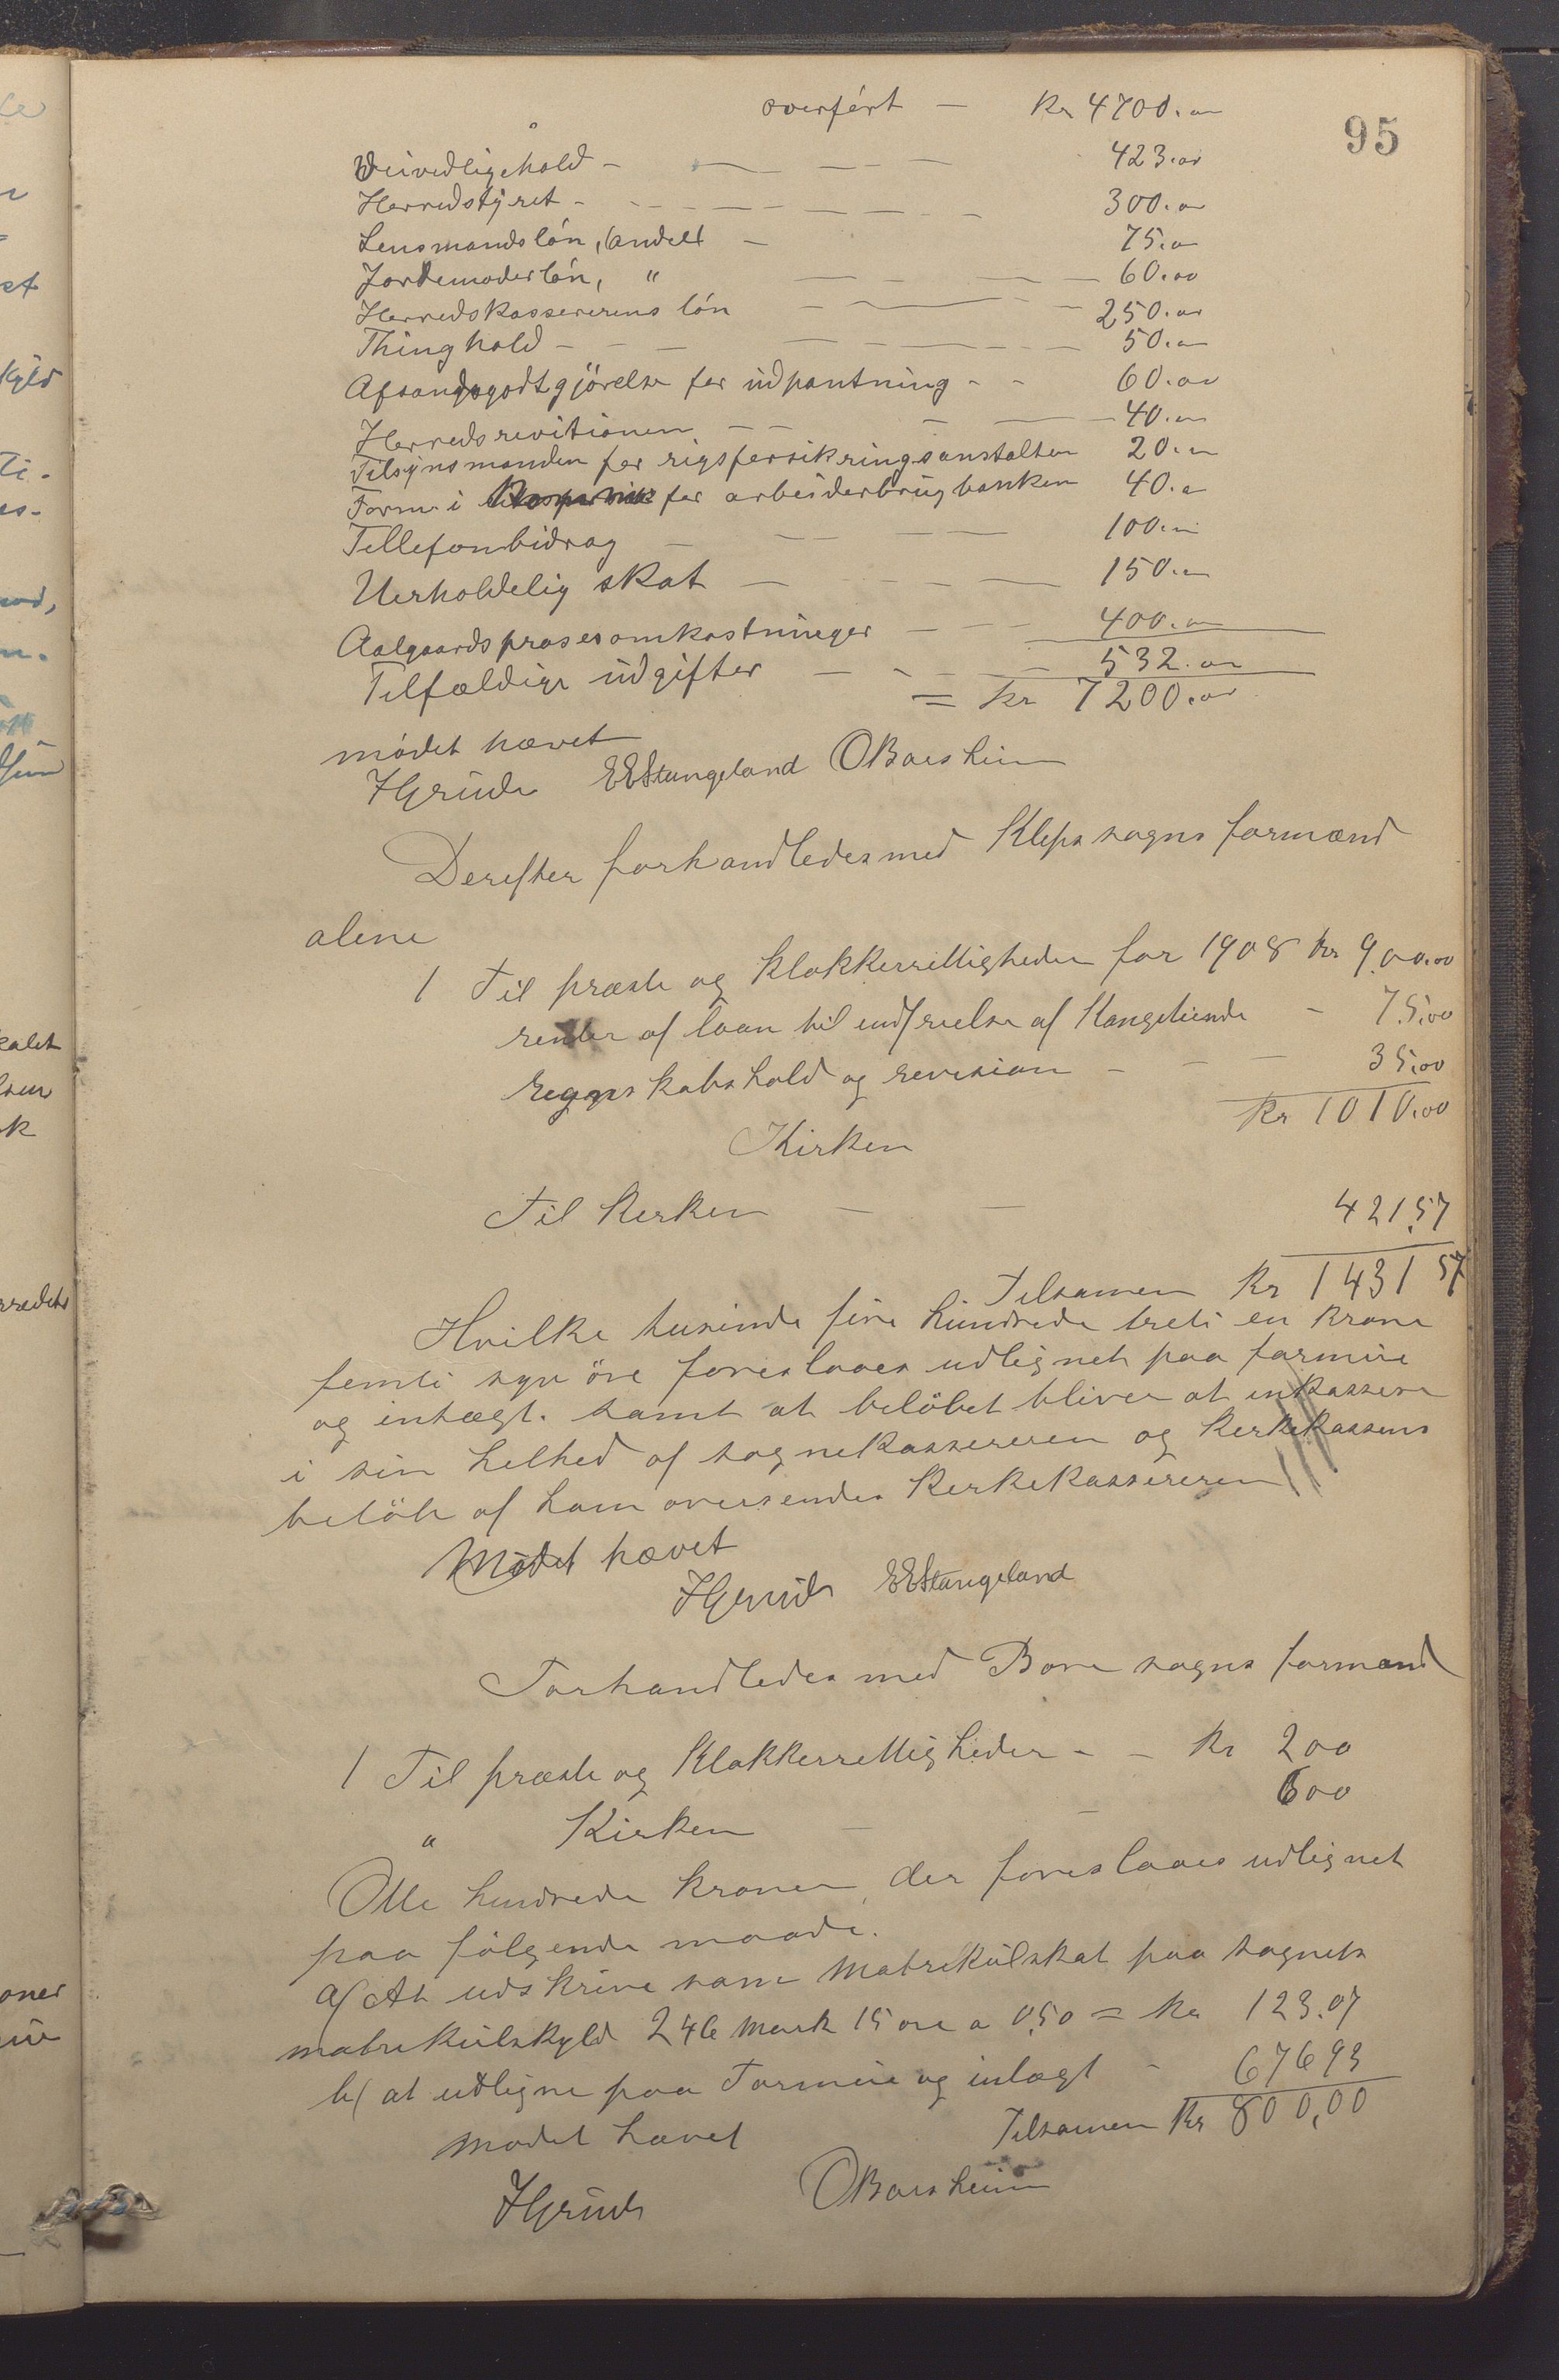 95
overført - Kr 4700.00
Veivedligehold - 423.00
Herredstyret - 300.00
Lensmandsløn, (andel) - 75.00
Jordemoderløn, " 60.00
Herredskassererens løn 250.00
Thinghold - 50.00
Afsangsgodtgjörelse for udpantning - 60.00
Herredsrevitionen 40.00
Tilsynsmanden for rigsforsikringsanstalten 20.00
Form. i for arbeiderbrug banken 40.00
Tellefonbidrag 100.00
Uerholdelig skat 150.00
Aalgaards prosesomkostninger 400.00
Tilfældige udgifter 532.00
= Kr 7200.00
mødet hævet
EEStangeland OBorsheim
Derefter forhandledes med Kleps sogns formænd
alene
1 Til præste og Klokkerrettigheder for 1908 Kr 900.00
renter af laan til indfrielse af Kongetiende - 75.00
regnskabshold og revision - 35.00
Kr 1010.00
Kirken
Til Kirken - 421,57
Tilsamen Kr 1431 57
Hvilke tusinde fire hundrede treti en krone
femti syv öre foreslaaes udlignet paa formue
og intægt. samt at belöbet bliver at inkassere
i sin helhed af sognekassereren og Kirkekassens
belöb af ham oversendes Kirkekassereren
Mødet hævet
EEStangeland
Forhandledes med Bore sogns formænd
1 Til præste og Klokkerrettigheder - - Kr 200
" Kirken - 600
Otte hundrede kroner, der foreslaaes udlignet
paa følgende maade.
a/ At udskrive som matrikulskat paa sognets
matrikulskyld 246 mark 15 øre a 0,50 = Kr 123.07
b/ at udligne paa Formue og intægt - 676 93
Tilsamen Kr 800,00
Mødet hævet
OBorsheim